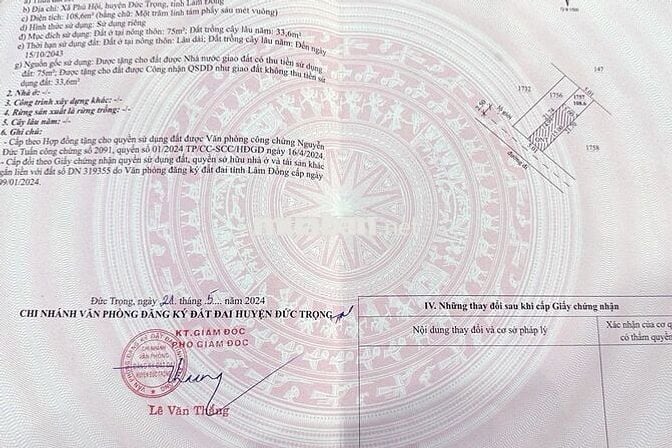 b) Địa chỉ: Xã Phú Hội, huyện Đức Trọng, tỉnh Lâm Đồng
c) Diện tích: 108,6m² (bằng chữ: Một trăm linh tám phẩy sáu mét vuông)
d) Hình thức sử dụng: Sử dụng riêng
đ) Mục đích sử dụng: Đất ở tại nông thôn: 75m²; Đất trồng cây lâu năm: 33,6m²
e) Thời hạn sử dụng đất: Đất ở tại nông thôn: Lâu dài; Đất trồng cây lâu năm: Đến ngày
15/10/2043
g) Nguồn gốc sử dụng: Được tặng cho đất được Nhà nước giao đất có thu tiền sử dụng
đất: 75m²; Được tặng cho đất được Công nhận QSDĐ như giao đất không thu tiền sử
dụng đất: 33,6m²
2. Nhà ở: -/-
3. Công trình xây dựng khác: -/-
4. Rừng sản xuất là rừng trồng: -/-
5. Cây lâu năm: -/-
6. Ghi chú:
- Cấp theo Hợp đồng tặng cho quyền sử dụng đất được Văn phòng công chứng Nguyễn
Đức Tuấn công chứng số 2091, quyển số 01/2024 TP/CC-SCC/HĐGD ngày 16/4/2024.
- Cấp đổi theo Giấy chứng nhận quyền sử dụng đất, quyền sở hữu nhà ở và tài sản khác
gắn liền với đất số DN 319355 do Văn phòng đăng ký đất đai tỉnh Lâm Đồng cấp ngày
09/01/2024.
147
1732
1756
1757
108.6
5.01
1758
đường đi
Đức Trọng, ngày 21 tháng 5 năm 2024
CHI NHÁNH VĂN PHÒNG ĐĂNG KÝ ĐẤT ĐAI HUYỆN ĐỨC TRỌNG
KT.GIÁM ĐỐC
PHÓ GIÁM ĐỐC
CHI NHÁNH
VĂN PHÒNG
ĐĂNG KÝ ĐẤT ĐAI
HUYỆN ĐỨC TRỌNG
Lê Văn Thắng
IV. Những thay đổi sau khi cấp Giấy chứng nhận
Nội dung thay đổi và cơ sở pháp lý
Xác nhận của cơ q
có thẩm quyền